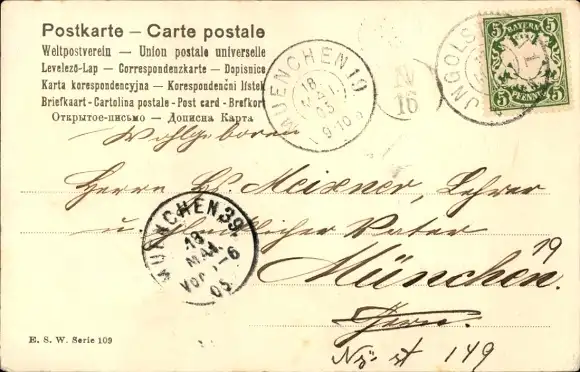 Postkarte – Carte postale
Weltpostverein – Union postale universelle
Levelező-Lap – Correspondenzkarte – Dopisnice
Karta korespondencyjna – Korespondenční lístek
Briefkaart - Cartolina postale - Post card - Brefkort
Открытое-письмо — Дописна Карта
MUENCHEN 19
18
MAI
05
9-10
IV
16
INGOLS
BAYERN
5 5
5 5
PFENNIG
Wohlgeboren
Herrn Meixner, Lehrer
u. glücklicher Vater
München 19
MUENCHEN 39
18
MAI
5-6
05
149
E. S. W. Serie 109